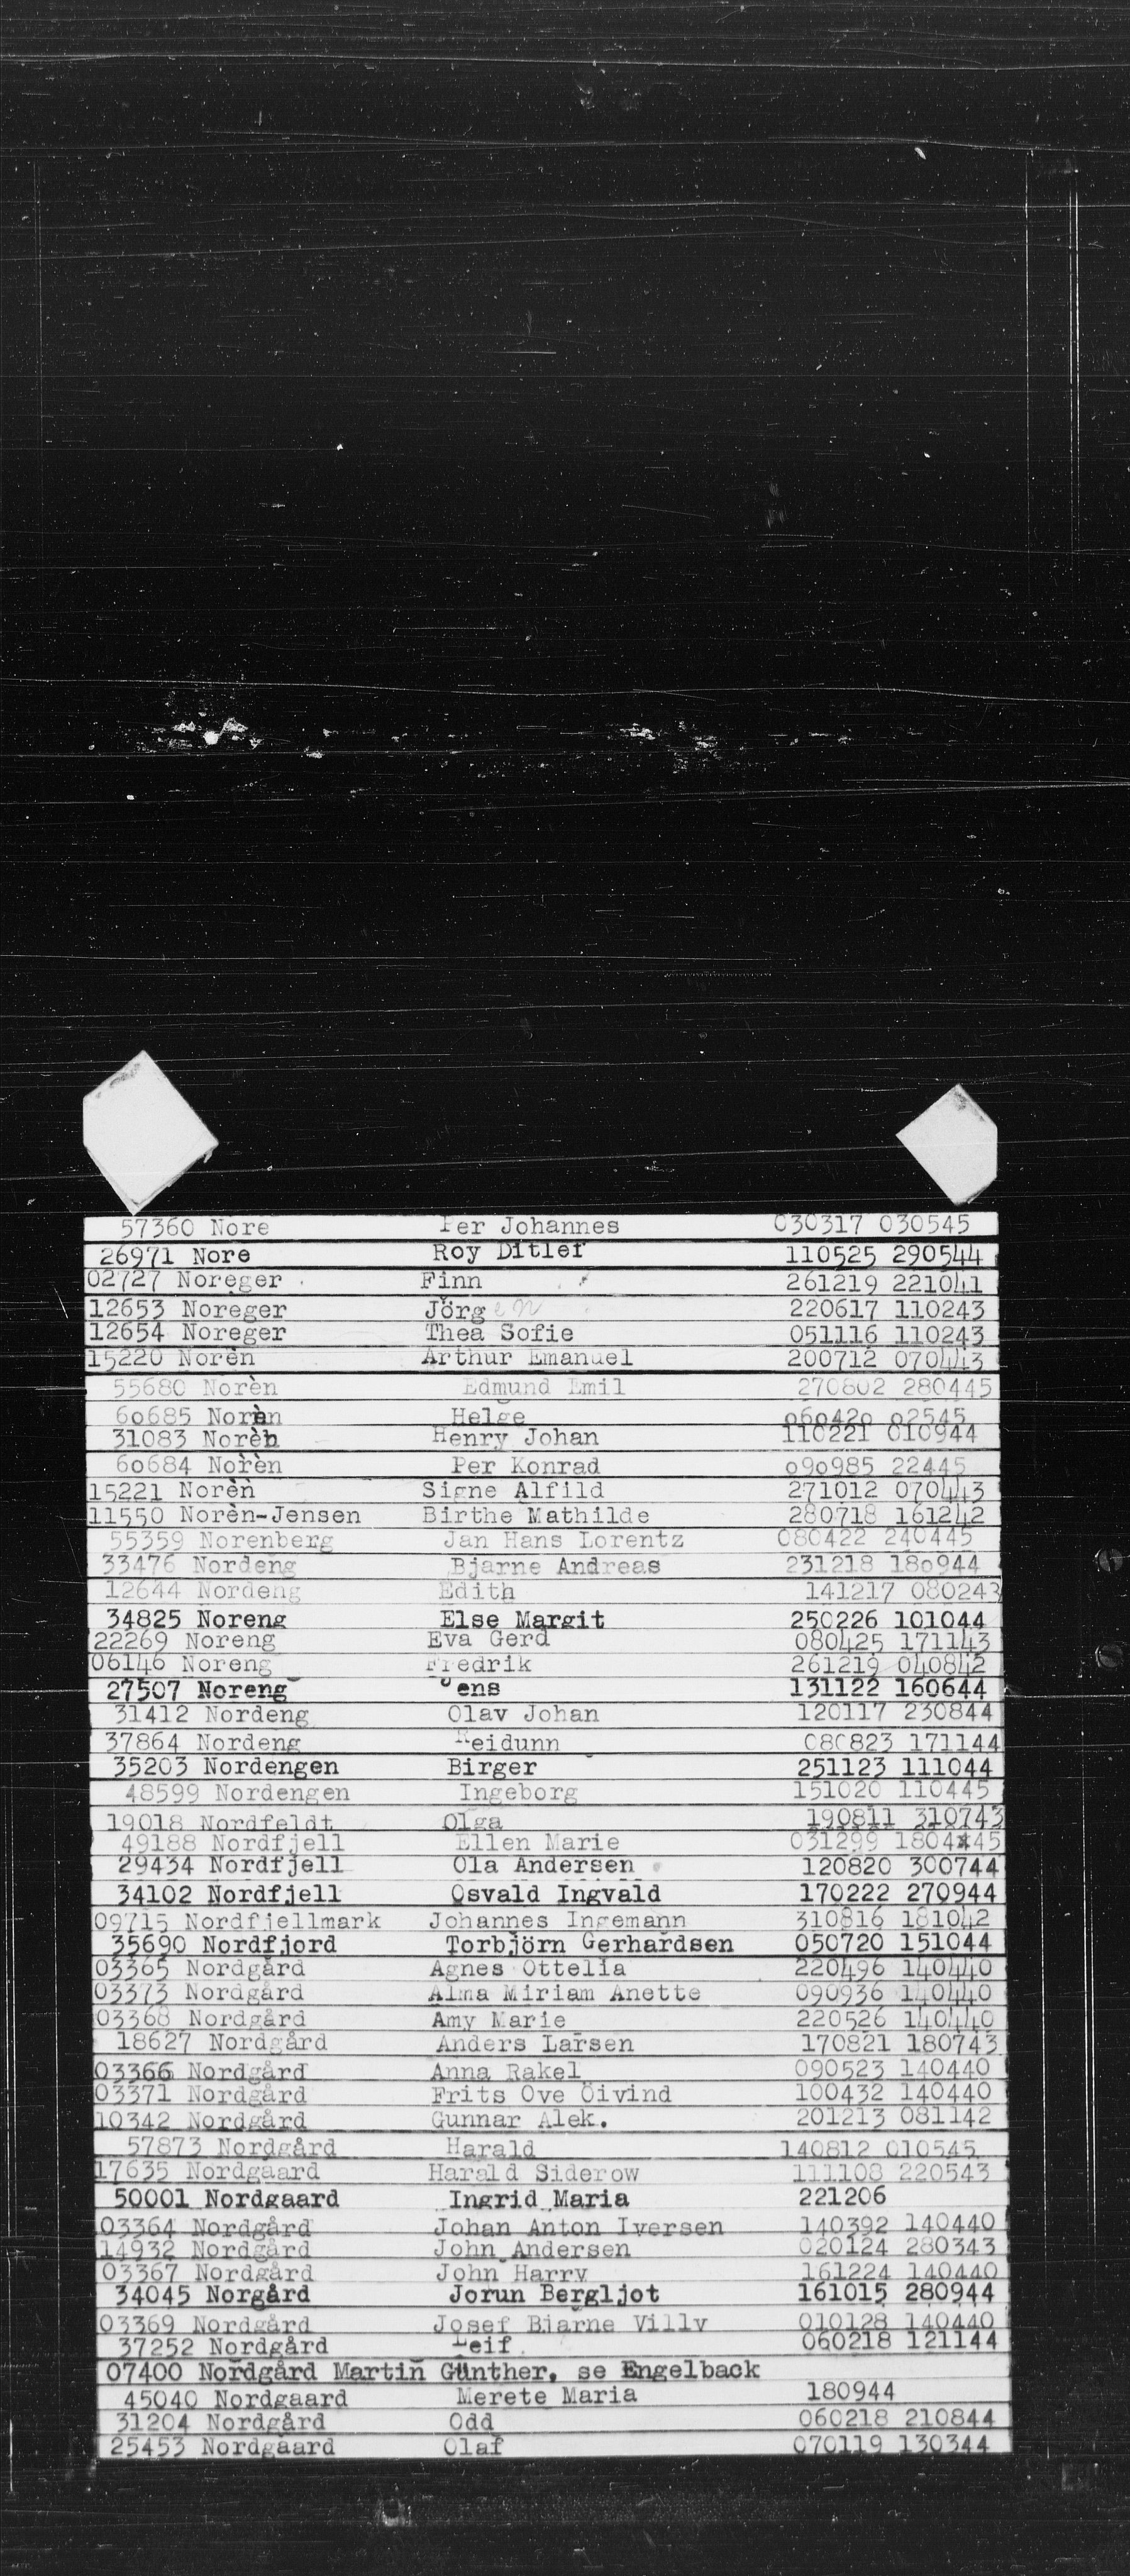 57360 Nore Per Johannes 030317 030545
26971 Nore Roy Ditlef 110525 290544
02727 Noreger Finn 261219 221041
12653 Noreger Jörgen 220617 110243
12654 Noreger Thea Sofie 051116 110243
15220 Norèn Arthur Emanuel 200712 070443
55680 Norèn Edmund Emil 270802 280445
60685 Norèn Helge 060420 02545
31083 Norèn Henry Johan 110221 010944
60684 Norèn Per Konrad 090985 22445
15221 Norèn Signe Alfild 271012 070443
11550 Norèn-Jensen Birthe Mathilde 280718 161242
55359 Norenberg Jan Hans Lorentz 080422 240445
33476 Nordeng Bjarne Andreas 231218 180944
12644 Nordeng Edith 141217 080243
34825 Noreng Else Margit 250226 101044
22269 Noreng Eva Gerd 080425 171143
06146 Noreng Fredrik 261219 040842
27507 Noreng Jens 131122 160644
31412 Nordeng Olav Johan 120117 230844
37864 Nordeng Reidunn 080823 171144
35203 Nordengen Birger 251123 111044
48599 Nordengen Ingeborg 151020 110445
19018 Nordfeldt Olga 190811 310743
49188 Nordfjell Ellen Marie 031299 180445
29434 Nordfjell Ola Andersen 120820 300744
34102 Nordfjell Osvald Ingvald 170222 270944
09715 Nordfjellmark Johannes Ingemann 310816 181042
35690 Nordfjord Torbjörn Gerhardsen 050720 151044
03365 Nordgård Agnes Ottelia 220496 140440
03373 Nordgård Alma Miriam Anette 090936 140440
03368 Nordgård Amy Marie 220526 140440
18627 Nordgård Anders Larsen 170821 180743
03366 Nordgård Anna Rakel 090523 140440
03371 Nordgård Frits Ove Öivind 100432 140440
10342 Nordgård Gunnar Alek. 201213 081142
57873 Nordgård Harald 140812 010545
17635 Nordgaard Harald Siderow 111108 220543
50001 Nordgaard Ingrid Maria 221206
03364 Nordgård Johan Anton Iversen 140392 140440
14932 Nordgård John Andersen 020124 280343
03367 Nordgård John Harry 161224 140440
34045 Norgård Jorun Bergljot 161015 280944
03369 Nordgård Josef Bjarne Villy 010128 140440
37252 Nordgård Leif 060218 121144
07400 Nordgård Martin Günther, se Engelback
45040 Nordgaard Merete Maria 180944
31204 Nordgård Odd 060218 210844
25453 Nordgaard Olaf 070119 130344